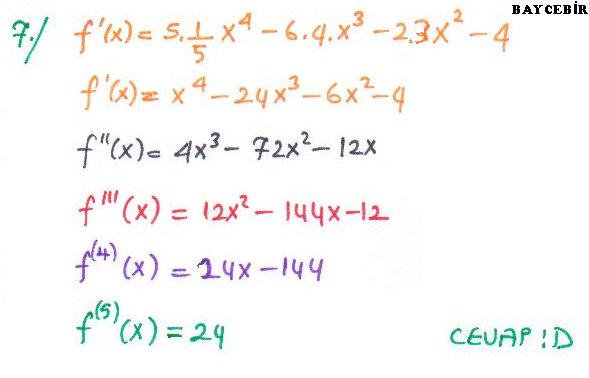 BAYCEBİR
7./ f'(x) = 5.1/5 x⁴ - 6.4.x³ - 2.3x² - 4
f'(x) = x⁴ - 24x³ - 6x² - 4
f''(x) = 4x³ - 72x² - 12x
f'''(x) = 12x² - 144x - 12
f⁽⁴⁾(x) = 24x - 144
f⁽⁵⁾(x) = 24
CEVAP : D